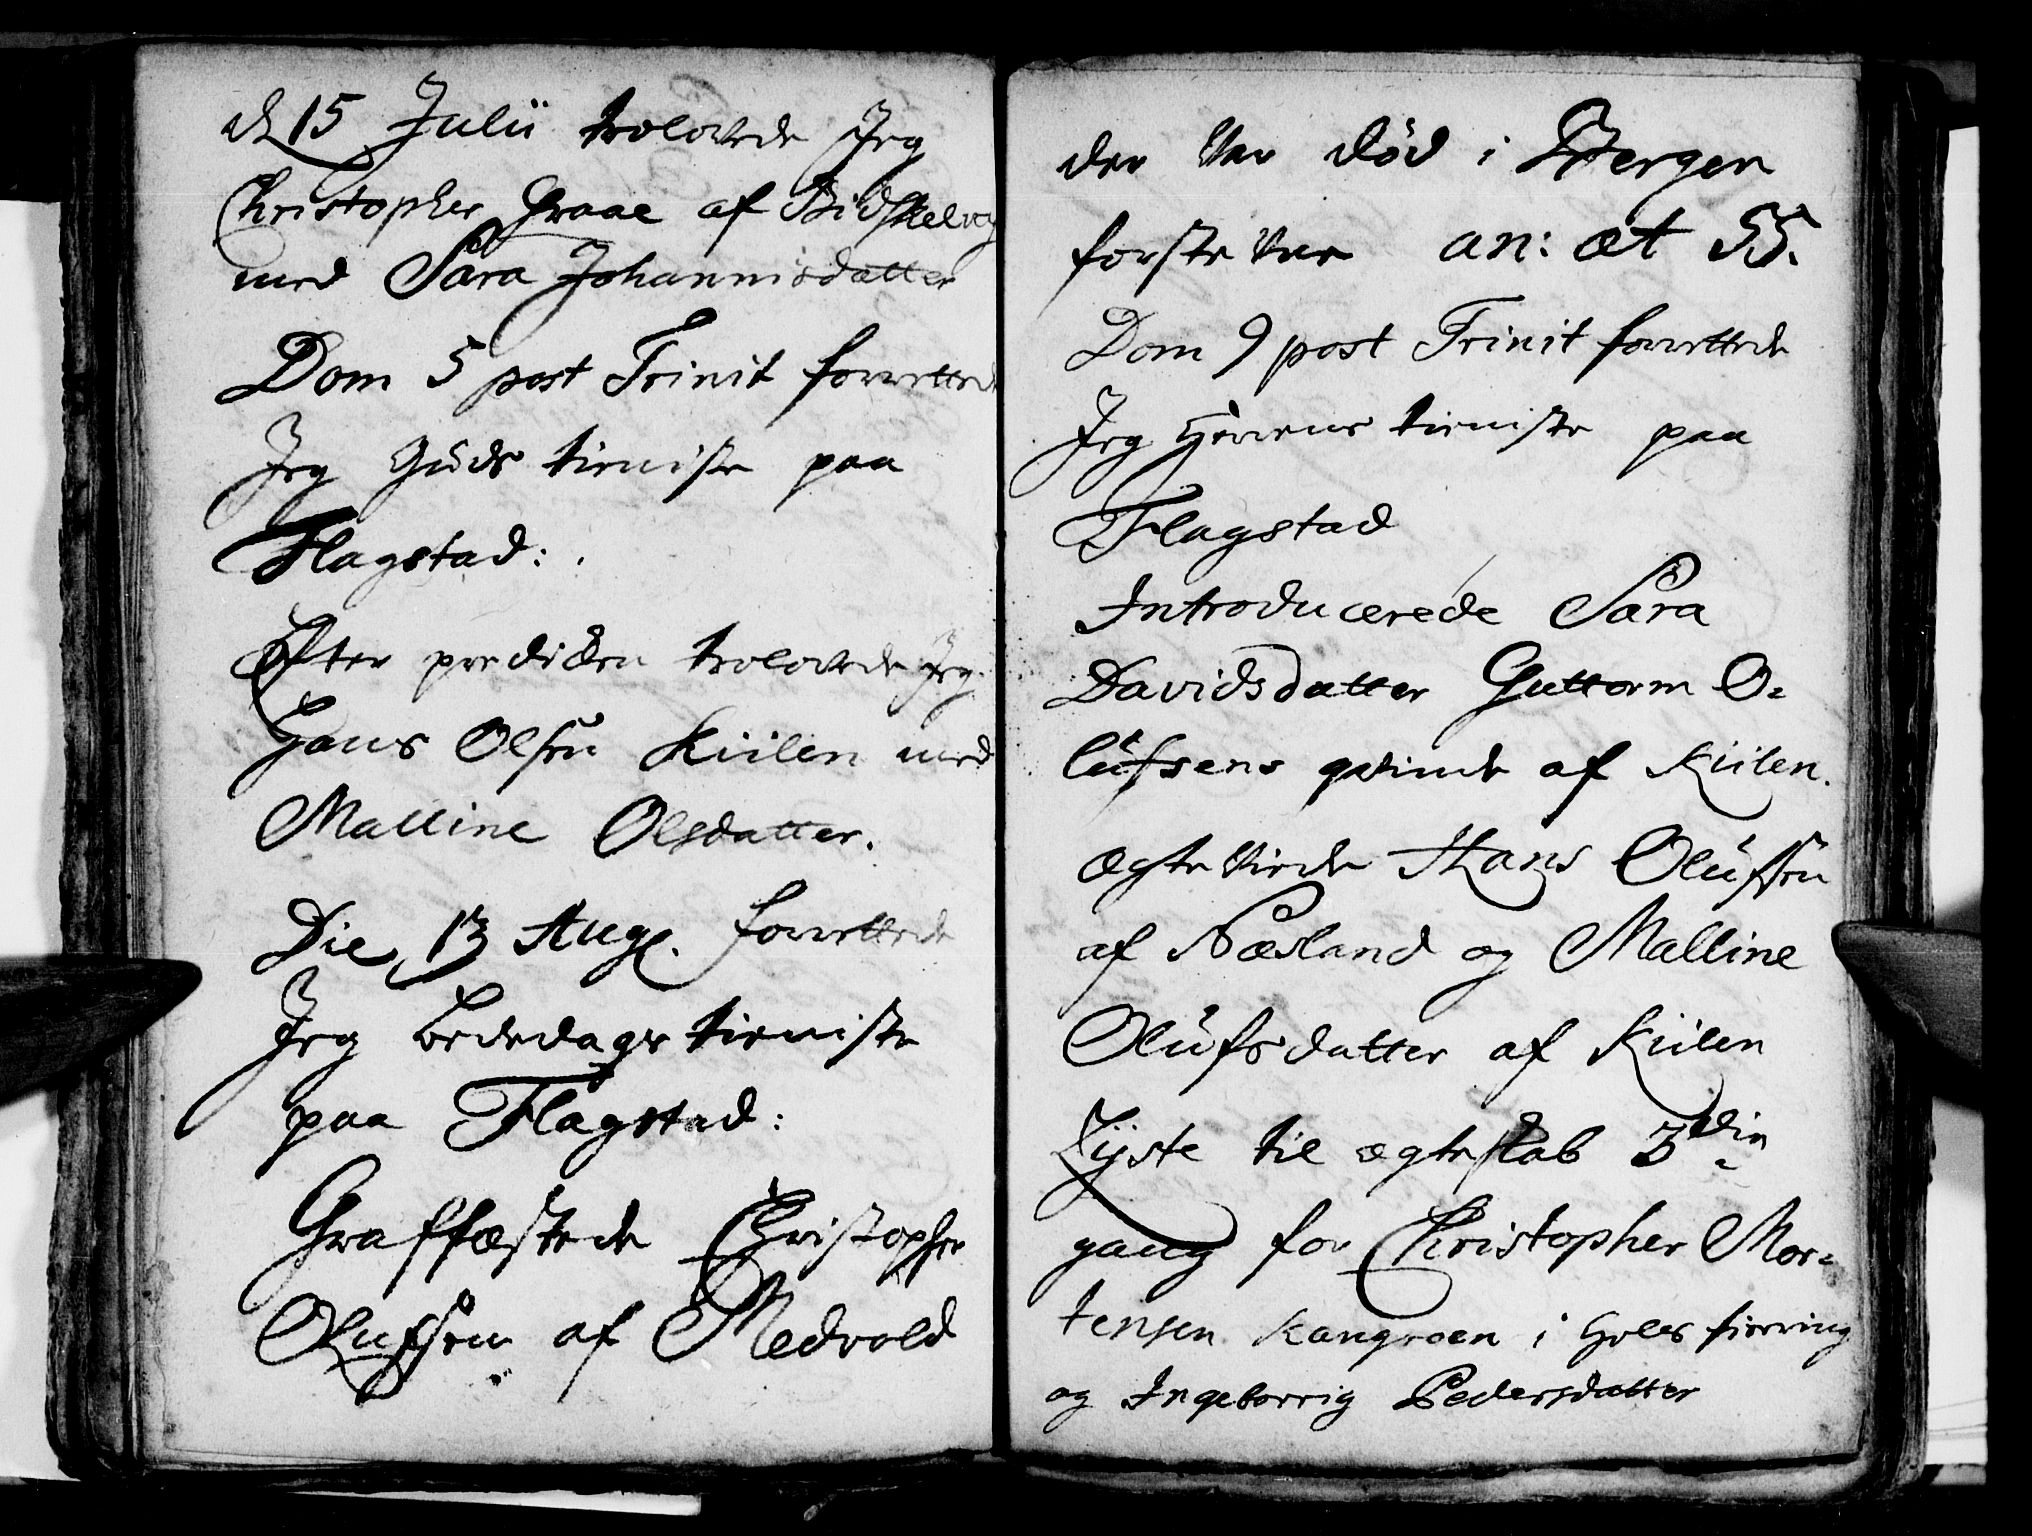 d 15 Julii trolovede Jeg
Christopher Graae af Bidskelvog
med Sara Johannisdatter
Dom 5 post Trinit forrettede
Jeg Guds tieniste paa
Flagstad:
Efter prediken trolovede Jeg
Hans Olsen Kiilen med
Malline Olsdatter.
Die 13 Aug. forrettede
Jeg Bededags tieniste
paa Flagstad:
Graffæstede Christopher
Olufsen af Medvold
der var død i Bergen
forste var an: æt 55.
Dom 9 post Trinit forrettede
Jeg Herrens tieniste paa
Flagstad
Introducerede Sara
Davidsdatter Guttorm O-
lüfsens qvinde af Kiilen.
ægteviede Hans Olüfsen
af Næsland og Malline
Olüfsdatter af Kiilen
Lyste til ægteskab 3die
gang for Christopher Mor-
tensen Kangroen i Hols fierring
og Ingeborrig Pedersdatter